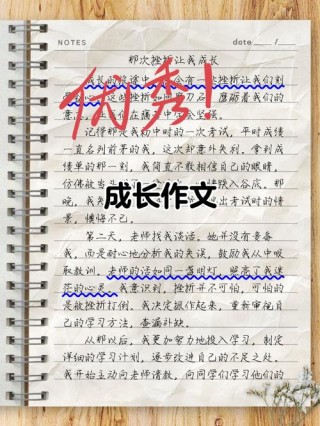 NOTES date /
那次挫折让我成长
优秀!
成长的旅途中 会有一些挫折让我们刻
骨
意 在痛苦中 坚强。
记得那是我初中时的一次考试,平时成绩
一直名列前茅的我,这次却意外失利。拿到成
绩单的那一刻,我简直不敢相信自己的眼睛,
仿佛被 跌入谷底。那
晚,我 出考试时的
成长作文
情景,懊悔不已。
第二天,老师找我谈话。她并没有责备
我,而是耐心地分析我的失误,鼓励我从中吸
取教训。老师的话如同一盏明灯,照亮了我迷
茫的心灵。我意识到,挫折并不可怕,可怕的
是被挫折打倒。我决定振作起来,重新审视自
己的学习方法,查漏补缺。
从那以后,我更加努力地投入学习,制定
详细的学习计划,逐步改进自己的不足之处。
我开始主动向老师请教,向同学们学习他们的